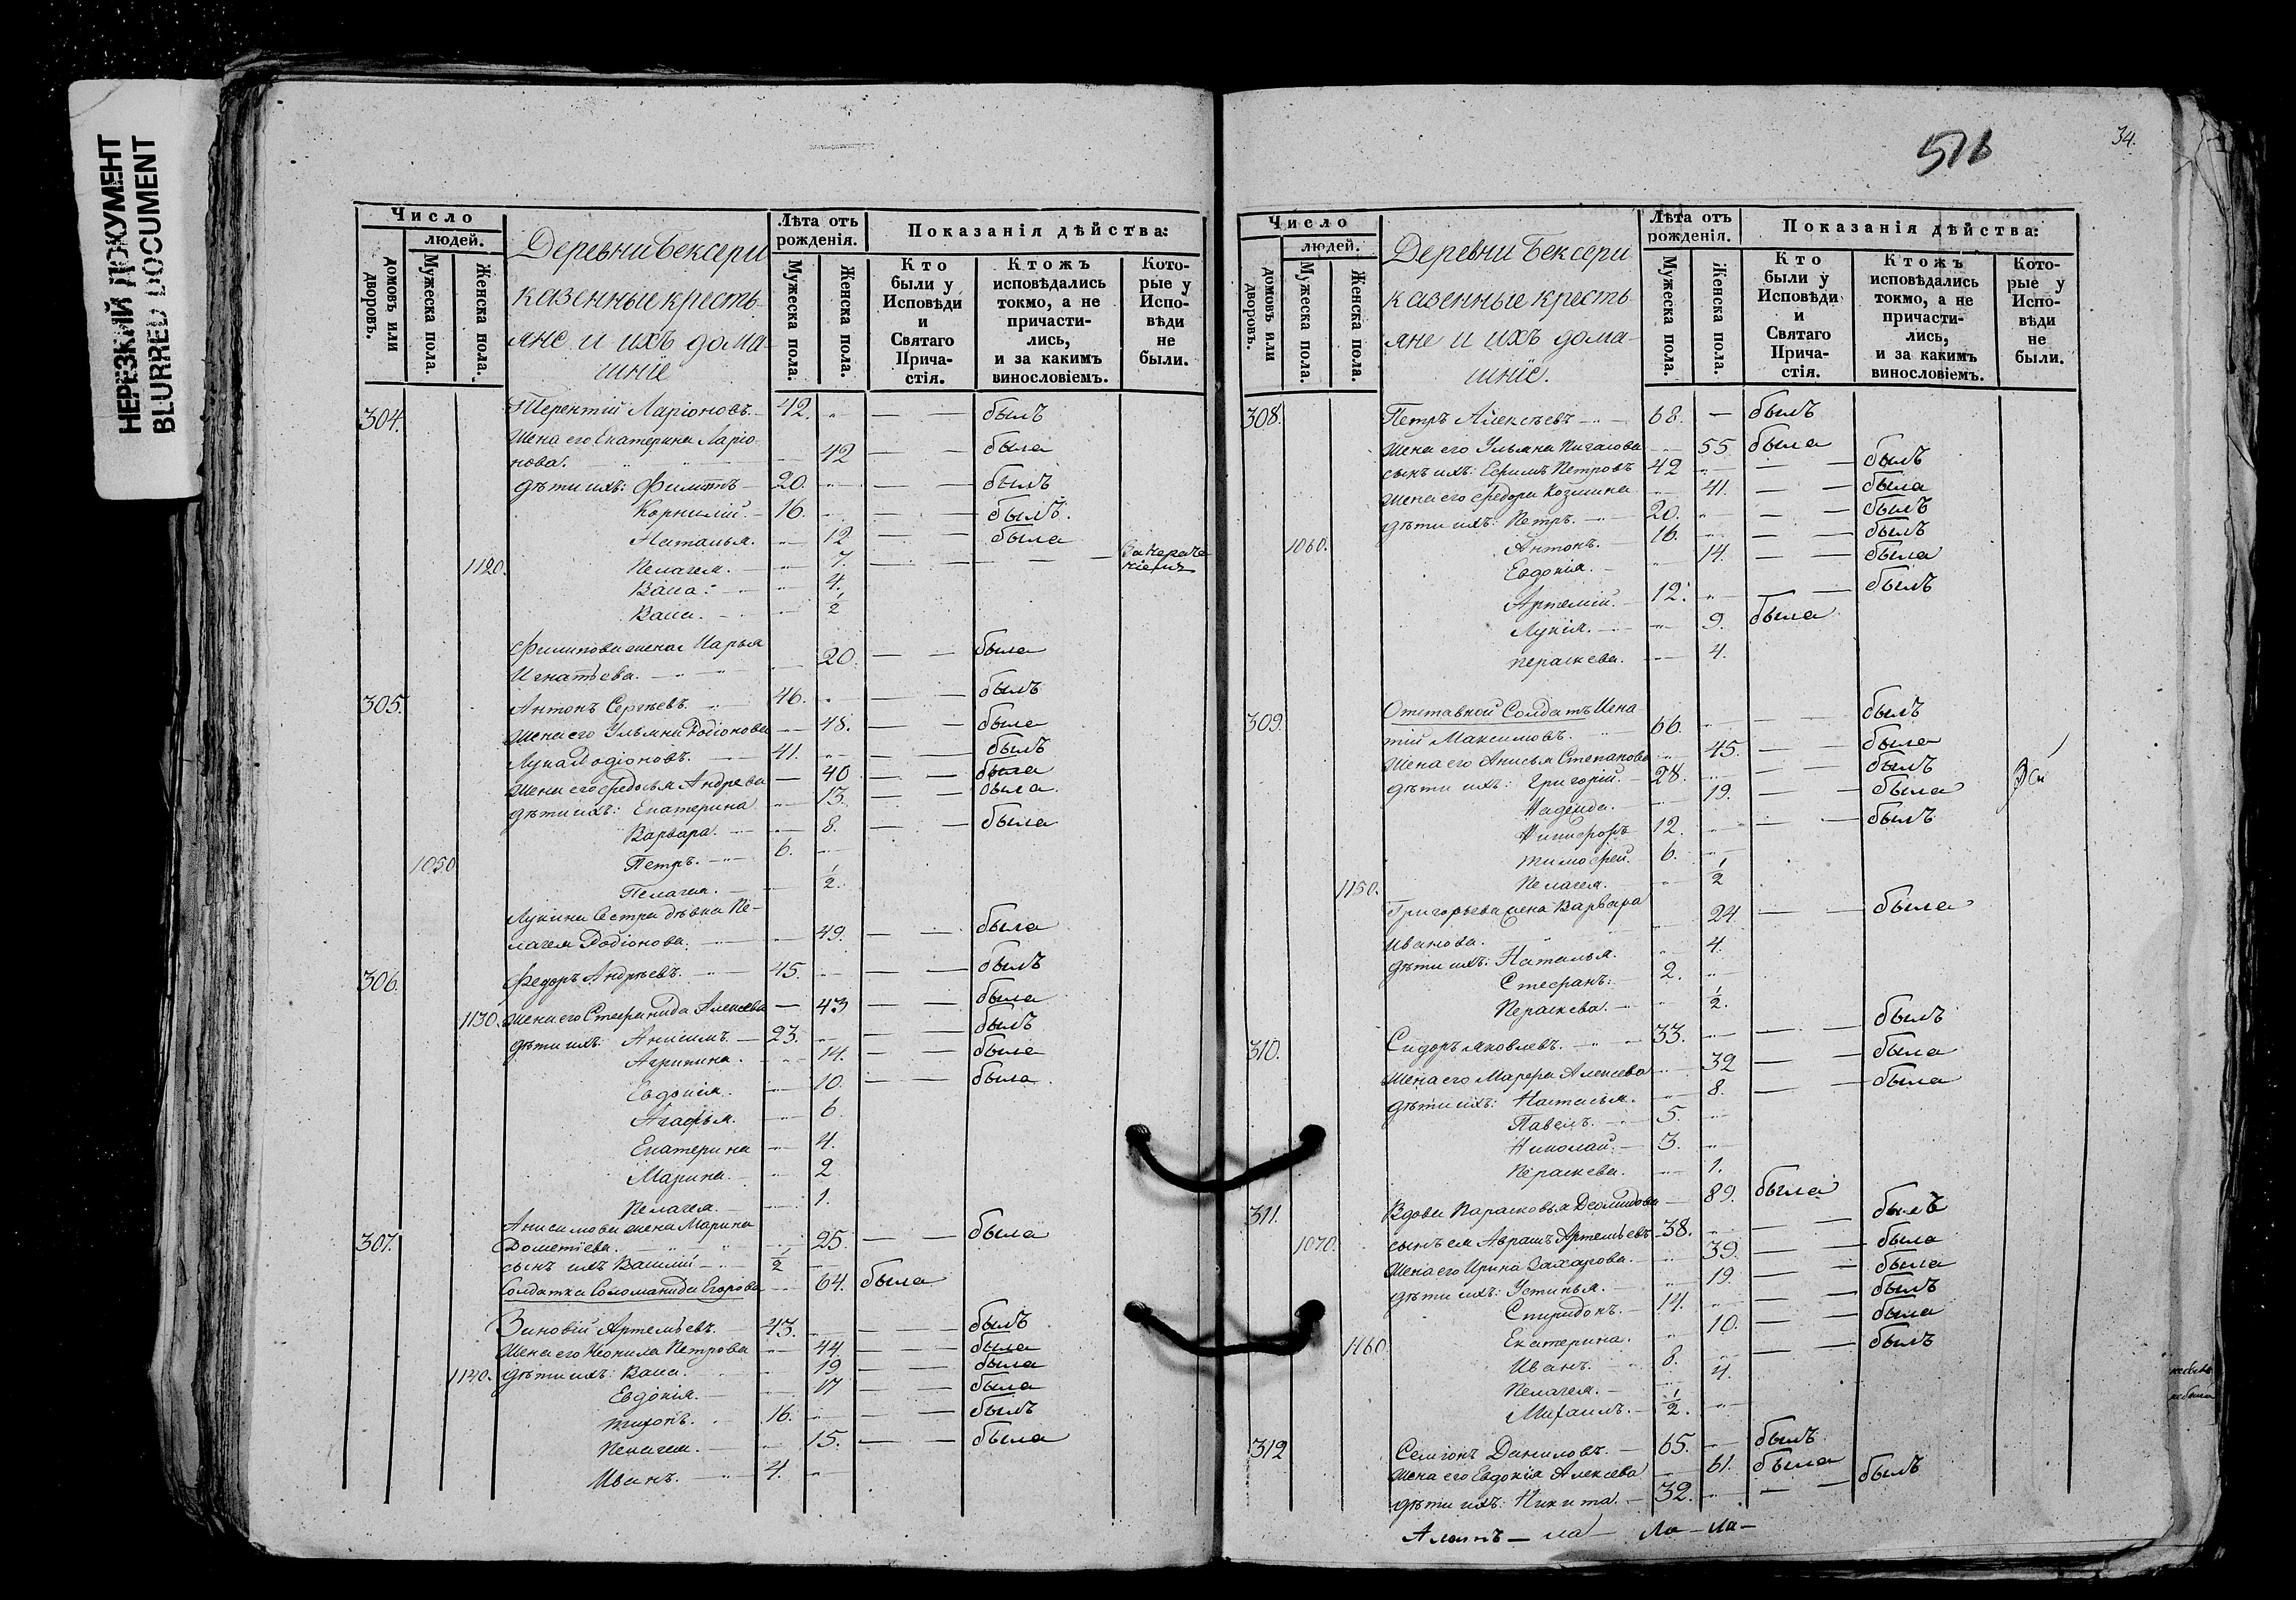 НЕРЕЗКИЙ ДОКУМЕНТ
BLURRED DOCUMENT
Число
людей.
домовъ или дворовъ.
Мужеска пола.
Женска пола.
Деревни Бексери
казенные кресть-
яне и ихъ дома-
шніе
Лѣта отъ рожденія.
Мужеска пола.
Женска пола.
Показанія дѣйства:
Кто были у Исповѣди и Святаго Прича-стія.
Ктожъ исповѣдались токмо, а не причасти-лись, и за какимъ винословіемъ.
Кото-рые у Испо-вѣди не были.
304. Терентій Ларіоновъ. 42. былъ
Жена его Екатерина Ларіо-
нова. 42 была
дѣти ихъ: Филиппъ 20. былъ
Корнилій. 16. былъ.
Наталья. 12 была
1120. Пелагея. 7.
Васса. 4.
Васса. 1/2
Филипова жена Марья
Игнатьева. 20. была
305. Антонъ Сергѣевъ. 46. былъ
Жена его Ульяна Родіонова 48. была
Лука Родіоновъ. 41. былъ
Жена его Федосья Андрева 40 была
дѣти ихъ: Екатерина 13. была.
Варвара. 8. была
1050 Петръ. 6.
Пелагея. 1/2.
Лукина Сестра дѣвка Пе-
лагея Родіонова. 49. была
306. Федоръ Андрѣевъ. 45. былъ
1130. Жена его Стефанида Алексѣева 43 была
дѣти ихъ: Анисимъ. 23. былъ
Агрипина. 14. была
Евдокія. 10. была.
Агафья. 6.
Екатерина 4.
Марина. 2
Пелагея. 1.
Анисимова жена Марина
307. Дометіева. 25. была
сынъ ихъ Василій 1/2
Солдатка Соломанида Егорова 64. была
Зиновій Артемьевъ. 43. былъ
Жена его Неонила Петрова 44. была
1140. дѣти ихъ: Васса. 19 была
Евдокія. 17 была
Тихонъ. 16. былъ
Пелагея. 15. была
Иванъ. 4.
516
34.
Число
людей.
домовъ или дворовъ.
Мужеска пола.
Женска пола.
Деревни Бексери
казенные кресть-
яне и ихъ дома-
шніе.
Лѣта отъ рожденія.
Мужеска пола.
Женска пола.
Показанія дѣйства:
Кто были у Исповѣди и Святаго Прича-стія.
Ктожъ исповѣдались токмо, а не причасти-лись, и за какимъ винословіемъ.
Кото-рые у Испо-вѣди не были.
308. Петръ Алексѣевъ 68. былъ
Жена его Ульяна 55 была
сынъ ихъ: Ефимъ Петровъ 42 былъ
Жена его Федора Козмина 41. была
дѣти ихъ: Петръ. 20. былъ
1060. Антонъ. 16. былъ
Евдокія. 14. была
Артемій. 12. былъ
Лукія. 9. была
Параскева. 4.
309. Отставной Солдатъ Игна-
тій Максимовъ. 66. былъ
Жена его Анисья Степанова 45. была
дѣти ихъ: Григорій. 28. былъ
Надежда. 19. была
Никифоръ 12. былъ
Тимофей. 6.
1150. Пелагея. 1/2
Григорьева жена Варвара
Иванова. 24. была
дѣти ихъ: Наталья. 4.
Стефанъ. 2.
Параскева. 1/2.
310. Сидоръ Яковлевъ. 33. былъ
Жена его Марфа Алексеева 32 была
дѣти ихъ: Наталья. 8. была
Павелъ. 5.
Николай. 3.
Параскева. 1.
311. Вдова Парасковья Деомидова 89. была
1070. сынъ ея Аврамъ Артемьевъ 38. былъ
Жена его Ирина Захарова. 39. была
дѣти ихъ: Устинья. 19. была
Спиридонъ. 14. былъ
1160 Екатерина. 10. была
Иванъ. 8. былъ
Пелагея. 4.
Михаилъ. 1/2.
312 Семіонъ Даниловъ. 65. былъ
Жена его Евдокія Алексеева 61. была
дѣти ихъ: Никита. 32. былъ